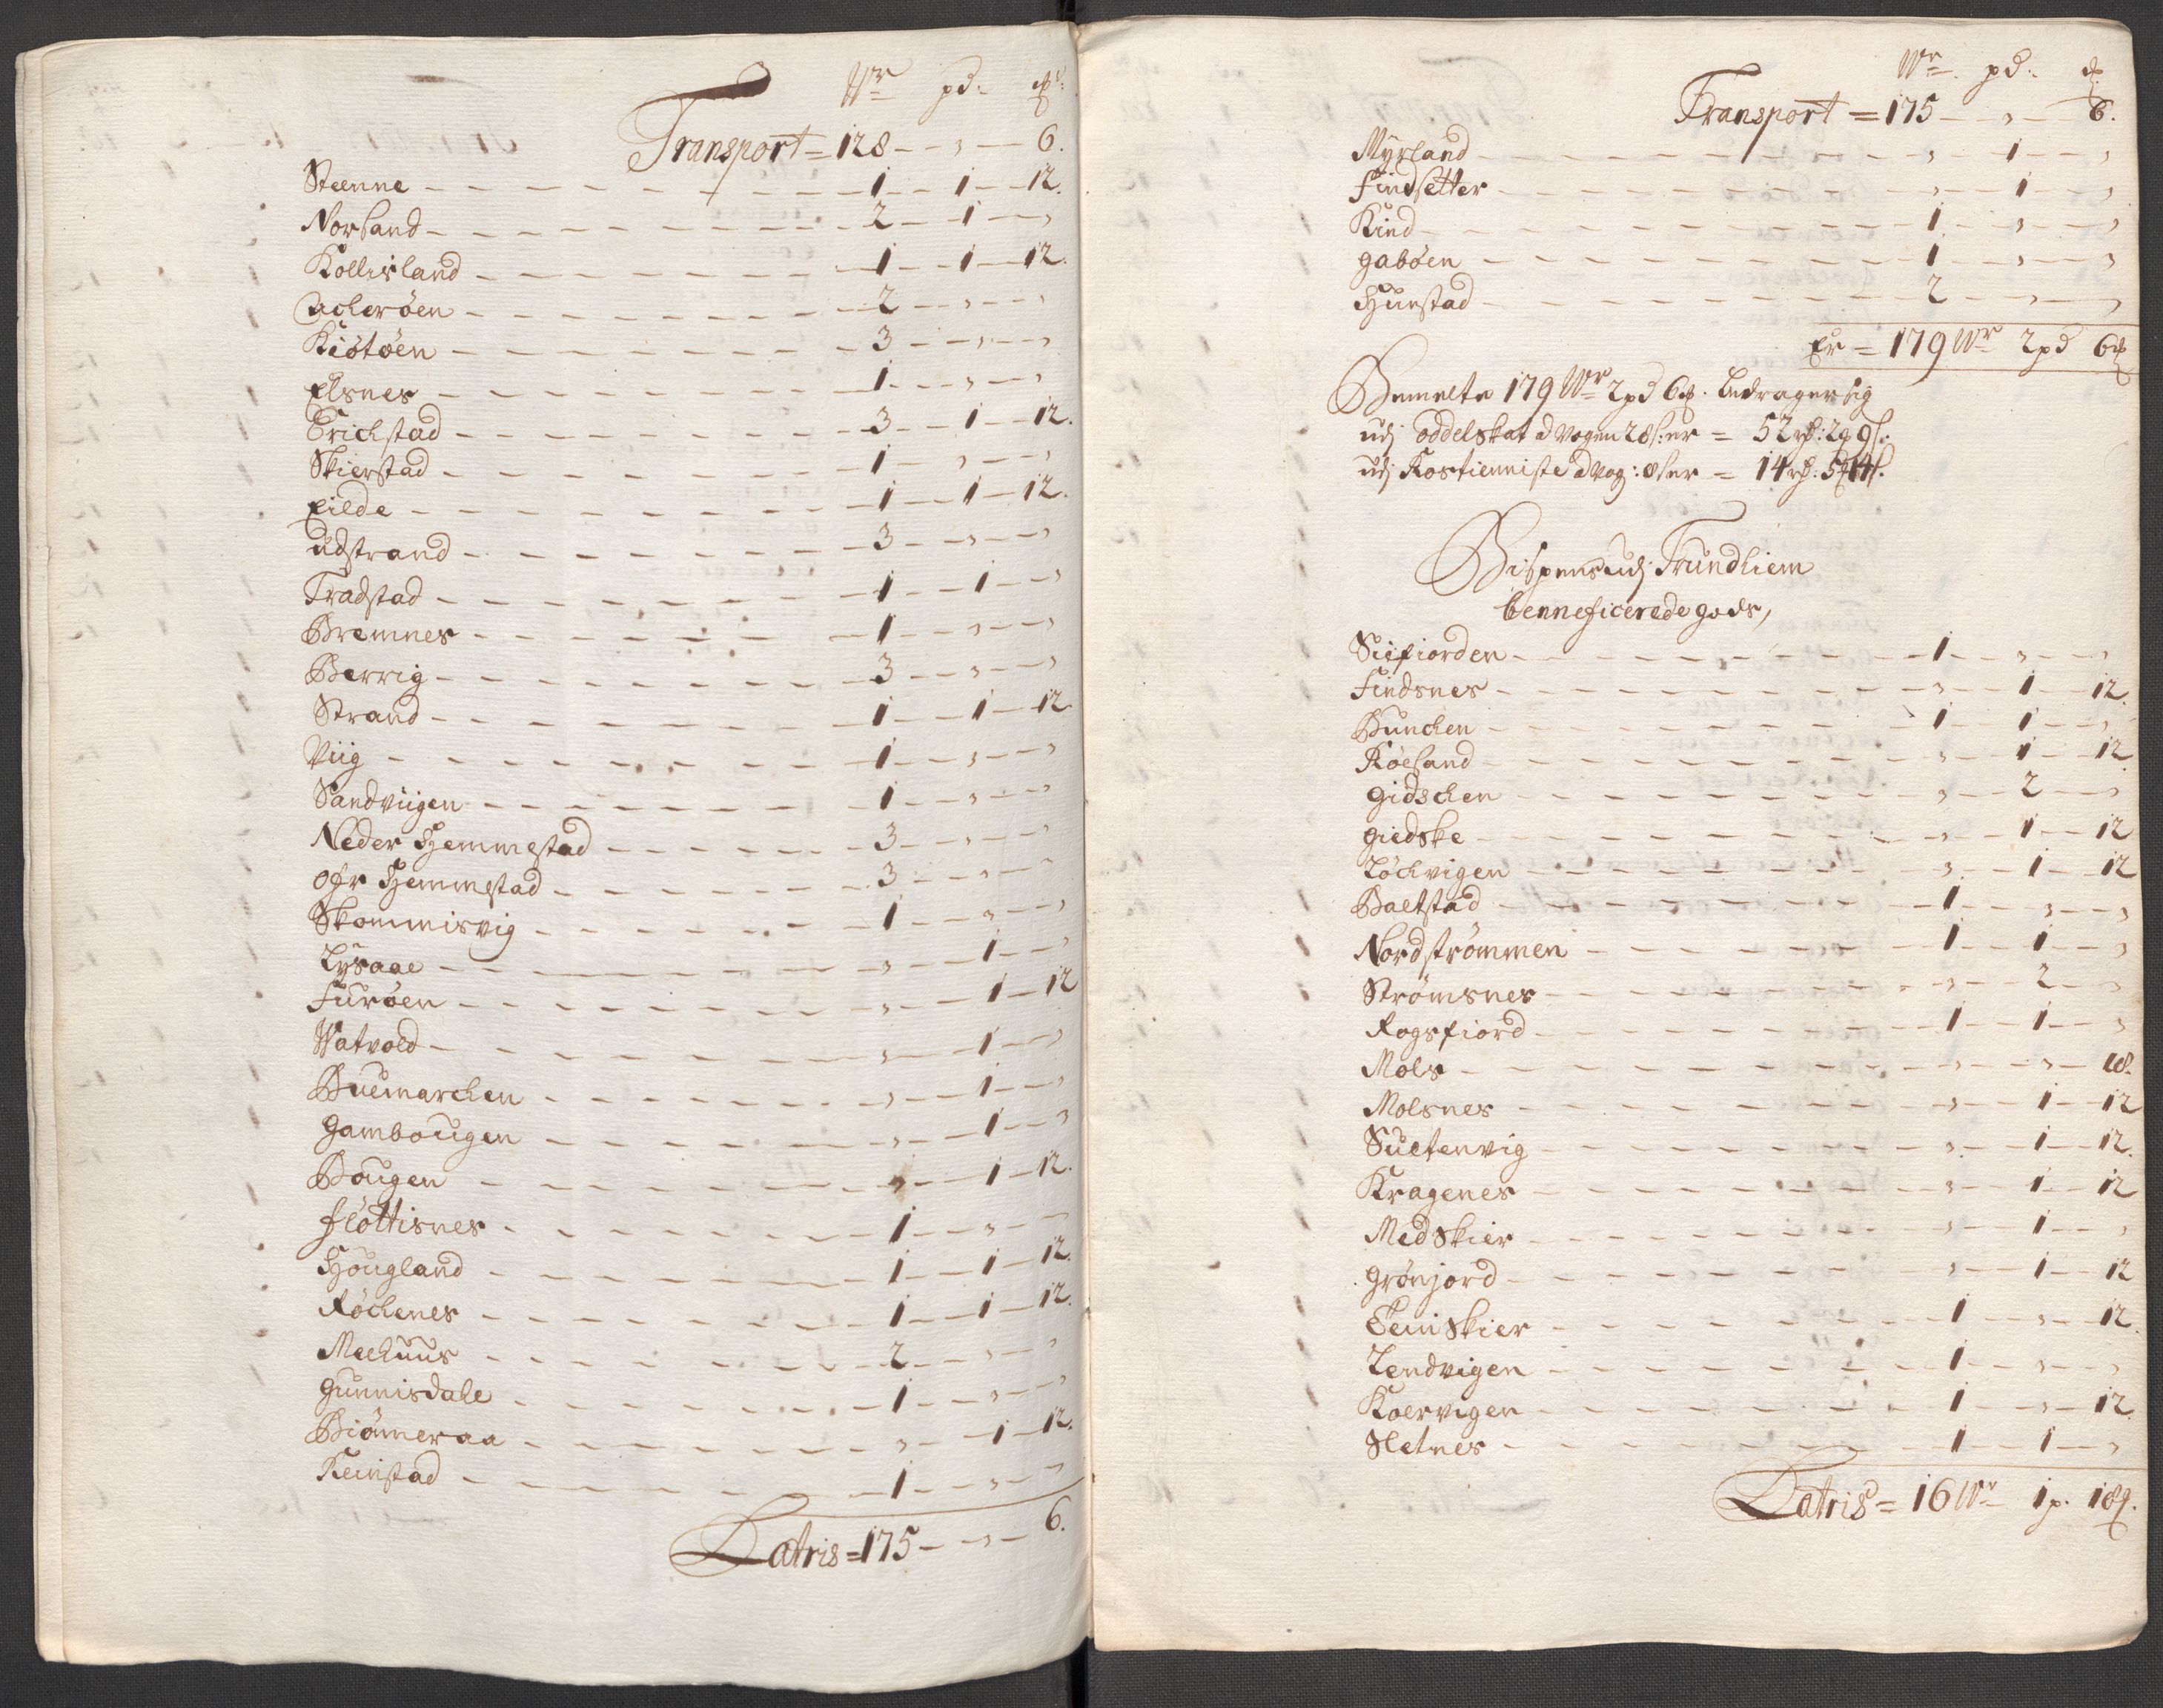 Wr pd: ℔:
Transport = 128 - , - 6.
Steenne - 1 - 1 - 12.
Norland - 2 - 1 - ,
Kollisland - 1 - 1 - 12.
Acherøen - 2 - , - ,
Kiøtøen - 3 - , - ,
Elsnes - 1 - , - ,
Erichstad - 3 - 1 - 12.
Skierstad - 1 - , - ,
Eilde - 1 - 1 - 12.
Udstrand - 3 - , - ,
Fradstad - 1 - 1 - ,
Bremnes - 1 - , - ,
Berrig - 3 - , - ,
Strand - 1 - 1 - 12.
Viig - 1 - , - ,
Sandviigen - 1 - , - ,
Neder Hemmestad - 3 - , - ,
Ofr Hemmestad - 3 - , - ,
Skommisvig - 1 - , - ,
Lysaae - , - 1 - ,
Furøen - , - 1 - 12
Watvold - , - 1 - ,
Buemarchen - , - 1 - ,
Gambougen - , - 1 - ,
Bougen - , - 1 - 12.
Fløttisnes - 1 - , - ,
Hougland - 1 - 1 - 12.
Røchenes - 1 - 1 - 12.
Meehuus - 2 - , - ,
Gunnisdale - 1 - , - ,
Biønneraa - , - 1 - 12.
Keinstad - 1 - , - ,
Latris = 175 - , - 6.
Wr pd: ℔
Transport = 175 - , - 6.
Myrland - , - 1 - ,
Findsetter - , - 1 - ,
Kind - 1 - , - ,
Gabøen - 1 - , - ,
Hunstad - 2 - , - ,
Er = 179 Wr 2 pd 6 ℔
Bemelte 179 Wr 2 pd 6 ℔. bedrager sig
udj Oddelskat a Vogen 28 s: er = 52 rd: 2 q 9 s.
udj Rostienniste a Vog: 8 s er = 14 rd: 5 q 14 s.
Bispens udj Trundhiem
benneficerede gods,
Siifiorden - 1 - , - ,
Findsnes - , - 1 - 12.
Bunchen - 1 - 1 - ,
Røeland - , - 1 - 12
Gidschen - , - 2 - ,
Giedske - , - 1 - 12
Løchvigen - , - 1 - 12
Baltstad - 1 - , - ,
Nordstrømmen - 1 - 1 - ,
Strømsnes - , - 2 - ,
Rogsfiord - 1 - 1 - ,
Mols - , - , - 18.
Molsnes - , - 1 - 12
Sultenvig - , - 1 - 12.
Kragenes - , - 1 - 12
Medskier - , - 1 - ,
Grønjord - , - 1 - 12
Eeinskier - 1 - , - 12.
Lendvigen - 1 - , - ,
Koervigen - 1 - , - 12.
Sletnes - 1 - 1 - ,
Latris = 16 Wr 1 p. 18 ℔.